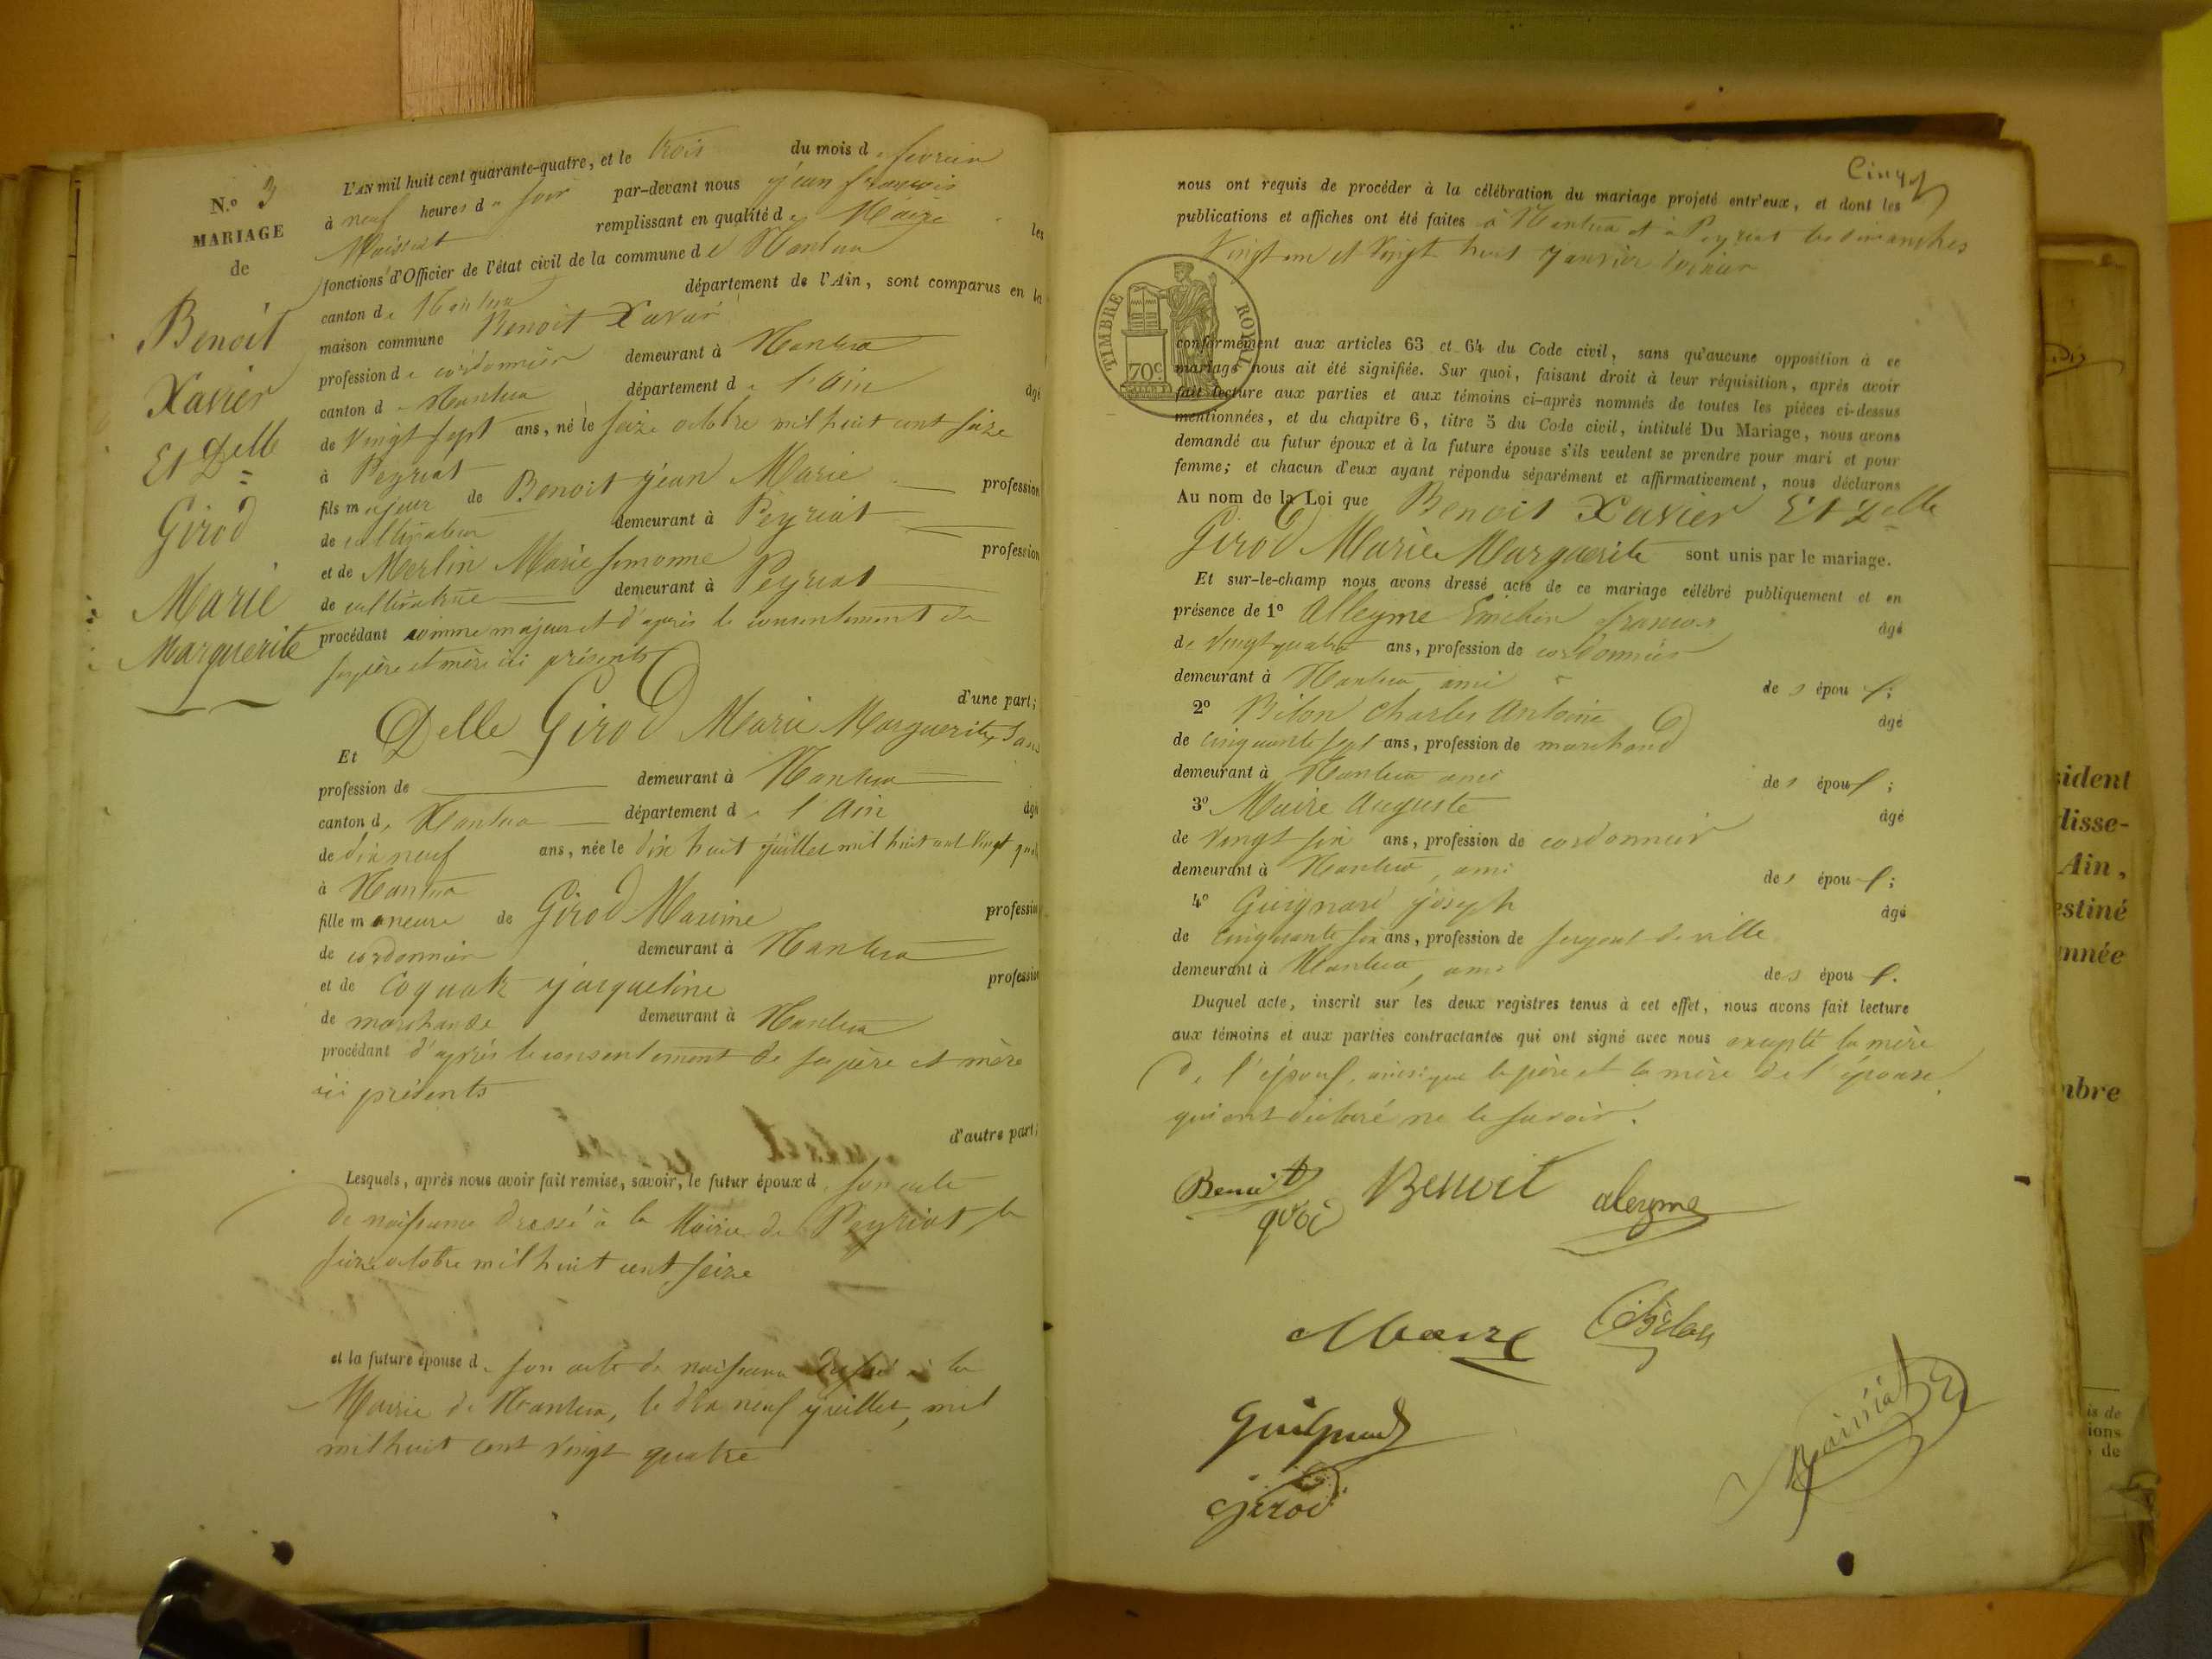 N.o 3
MARIAGE
de
Benoit
Xavier
Et Delle
Girod
Marie
Marguerite
L'AN mil huit cent quarante-quatre, et le trois du mois de fevrier
à neuf heures du soir par-devant nous jean françois
remplissant en qualité de Maire les
fonctions d'Officier de l'état civil de la commune de Nantua
canton de Nantua département de l'Ain, sont comparus en la
maison commune Benoit Xavier
profession de cordonnier demeurant à Nantua
canton de Nantua département de l'Ain âgé
de Vingt sept ans, né le seize octobre mil huit cent seize
à Peyriat
fils majeur de Benoit jean Marie profession
de cultivateur demeurant à Peyriat
et de Merlin Marie simonne profession
de cultivatrice demeurant à Peyriat
procédant comme majeur et d'après le consentement de
ses père et mère ici présents
d'une part;
Et Delle Girod Marie Marguerite, sans
profession de demeurant à Nantua
canton de Nantua département de l'Ain âgée
de dix neuf ans, née le dix huit juillet mil huit cent vingt quatre
à Nantua
fille mineure de Girod Maxime profession
de cordonnier demeurant à Nantua
et de Coquatz jacqueline profession
de marchande demeurant à Nantua
procédant d'après le consentement de ses père et mère
ici présents
d'autre part;
Lesquels, après nous avoir fait remise, savoir, le futur époux de son acte
de naissance dressé à la Mairie de Peyriat, le
seize octobre mil huit cent seize
et la future épouse de son acte de naissance dressé à la
Mairie de Nantua, le dix neuf juillet, mil
mil huit cent vingt quatre
Cinq
nous ont requis de procéder à la célébration du mariage projeté entr'eux, et dont les
publications et affiches ont été faites à Nantua et à Peyriat les dimanches
Vingt un et Vingt huit janvier dernier
TIMBRE ROYAL
70c
conformément aux articles 63 et 64 du Code civil, sans qu'aucune opposition à ce
mariage nous ait été signifiée. Sur quoi, faisant droit à leur réquisition, après avoir
fait lecture aux parties et aux témoins ci-après nommés de toutes les pièces ci-dessus
mentionnées, et du chapitre 6, titre 5 du Code civil, intitulé Du Mariage, nous avons
demandé au futur époux et à la future épouse s'ils veulent se prendre pour mari et pour
femme; et chacun d'eux ayant répondu séparément et affirmativement, nous déclarons
Au nom de la Loi que Benoit Xavier Et Delle
Girod Marie Marguerite sont unis par le mariage.
Et sur-le-champ nous avons dressé acte de ce mariage célébré publiquement et en
présence de 1o Alleyme françois âgé
de Vingt quatre ans, profession de cordonnier
demeurant à Nantua ami des époux;
2o Bilon Charles Antoine âgé
de cinquante sept ans, profession de marchand
demeurant à Nantua ami des époux;
3o Maire Auguste âgé
de Vingt six ans, profession de cordonnier
demeurant à Nantua, ami des époux;
4o Guignard joseph âgé
de cinquante six ans, profession de sergent de ville
demeurant à Nantua, ami des époux.
Duquel acte, inscrit sur les deux registres tenus à cet effet, nous avons fait lecture
aux témoins et aux parties contractantes qui ont signé avec nous excepté la mère
de l'époux, ainsi que le père et la mère de l'épouse
qui ont déclaré ne le savoir.
Benoit Benoit aleyme
Maire Bilon
Guignard
Girod
sident
disse-
Ain,
estiné
nnée
mbre
is de
ions
de